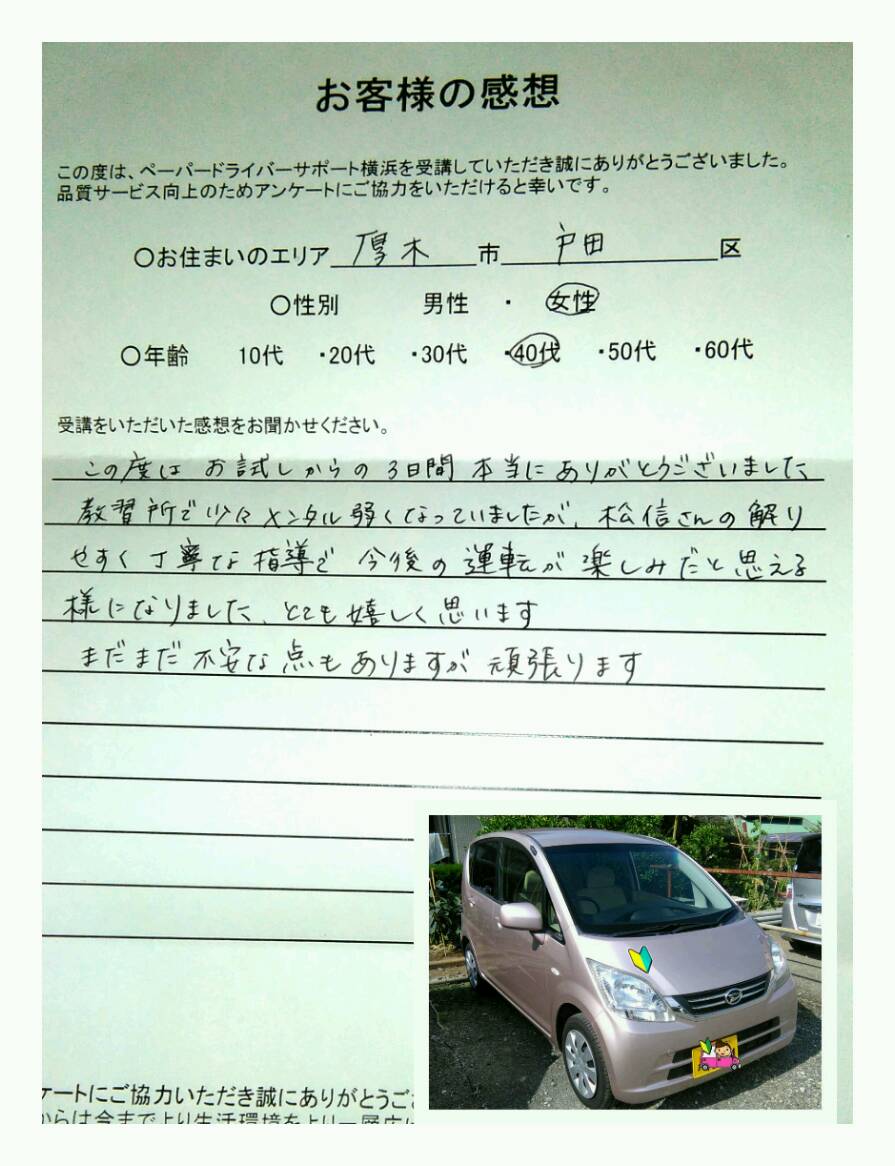 お客様の感想
この度は、ペーパードライバーサポート横浜を受講していただき誠にありがとうございました。
品質サービス向上のためアンケートにご協力をいただけると幸いです。
○お住まいのエリア 厚木 市 戸田 区
○性別 男性 ・ 女性
○年齢 10代 ・20代 ・30代 ・40代 ・50代 ・60代
受講をいただいた感想をお聞かせください。
この度は お試しからの 3日間 本当に ありがとうございました
教習所で 少々 メンタル 弱くなっていましたが、松信さんの 解り
やすく 丁寧な 指導で 今後の 運転が 楽しみだと 思える
様になりました、とても 嬉しく 思います
まだまだ 不安な 点も ありますが 頑張ります
ケートにご協力いただき誠にありがとうご
からは今までより生活環境をより一層広